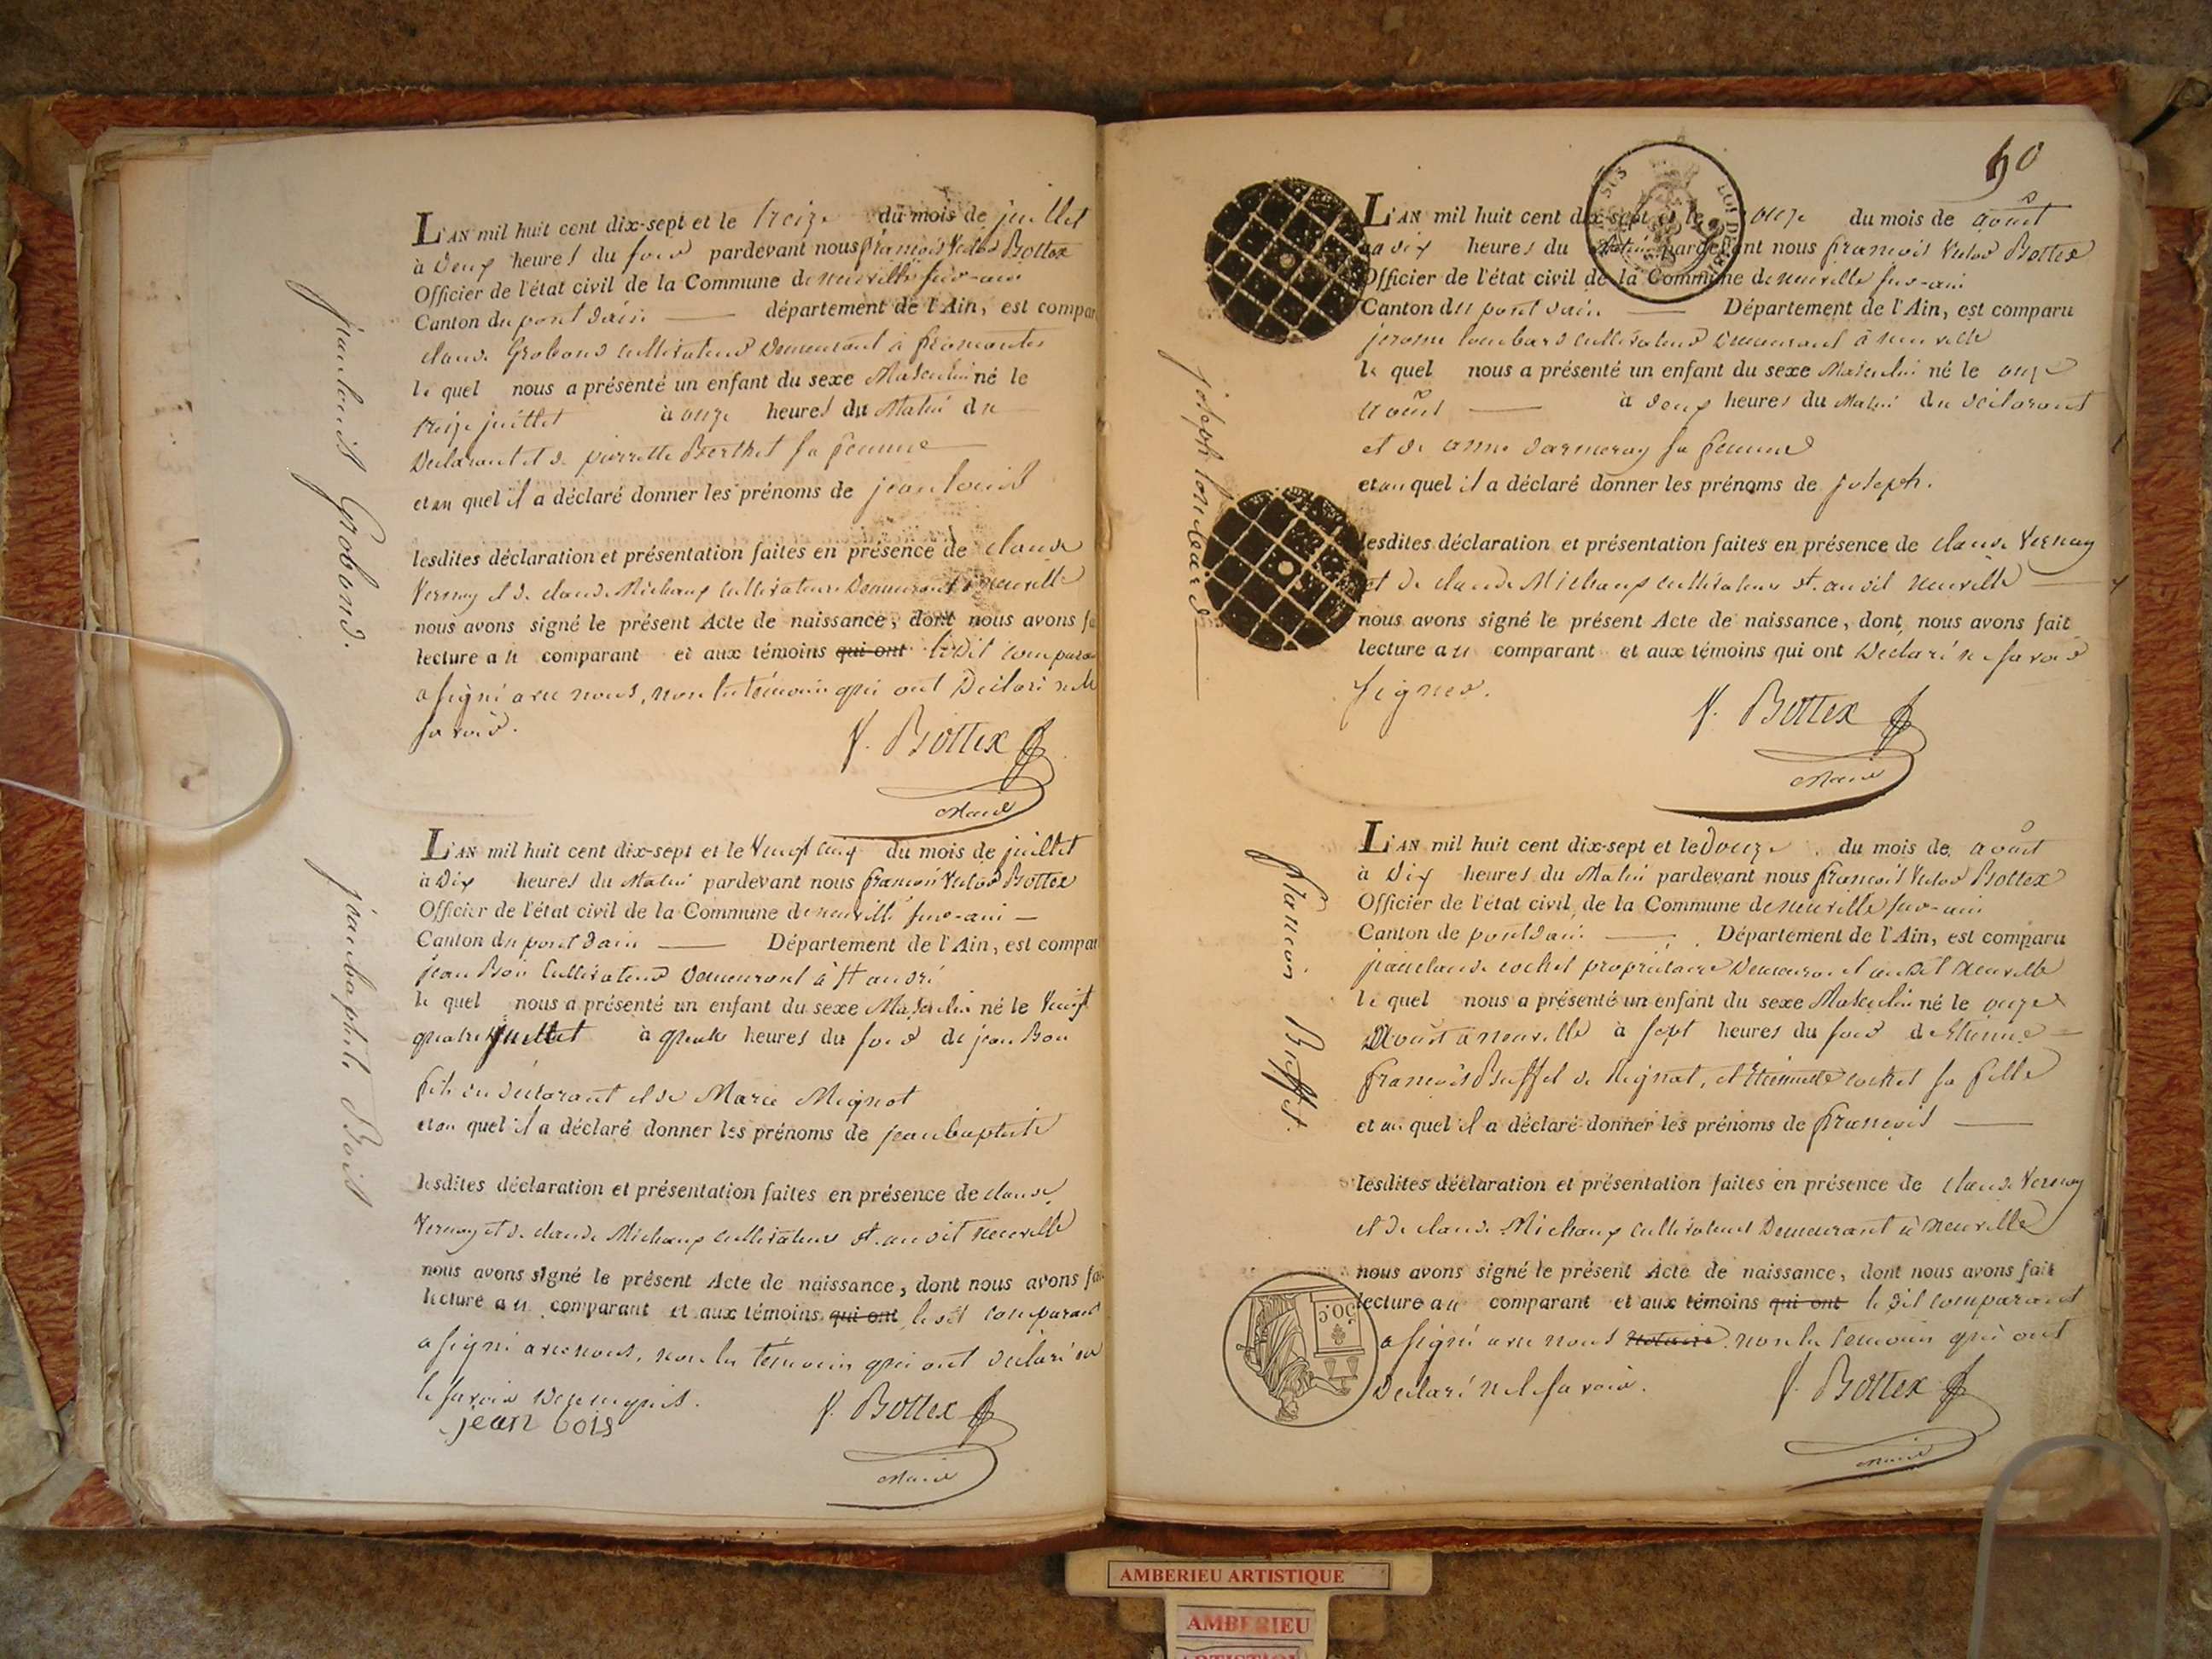 jean louis Groboud.
L'AN mil huit cent dix-sept et le treize du mois de juillet
à deux heures du soir pardevant nous françois Victor Bottex
Officier de l'état civil de la Commune de neuville sur-ain
Canton du pont dain département de l'Ain, est compar
claude Groboud cultivateur demeurant à fromentes
le quel nous a présenté un enfant du sexe Masculin né le
treize juillet à onze heures du Matin du
declarant et de pierrette Berthet sa femme
et au quel il a déclaré donner les prénoms de jean louis
lesdites déclaration et présentation faites en présence de claude
Vernay et de claude Michaux cultivateurs demeurant à neuville
nous avons signé le présent Acte de naissance, dont nous avons fa
lecture au comparant et aux témoins qui ont ledit compara
a signé avec nous, non les témoins qui ont Déclaré ne le
savoir.
V. Bottex
Maire
jean baptiste Bois
L'AN mil huit cent dix-sept et le Vingt cinq du mois de juillet
à Dix heures du Matin pardevant nous françois Victor Bottex
Officier de l'état civil de la Commune de neuville sur-ain
Canton du pont dain Département de l'Ain, est compar
jean Bois Cultivateur Demeurant à St andré
le quel nous a présenté un enfant du sexe Masculin né le Vingt
quatre juillet à quatre heures du soir de jean Bois
fils du déclarant et de Marie Mignot
et au quel il a déclaré donner les prénoms de jean baptiste
lesdites déclaration et présentation faites en présence de claude
Vernay et de claude Michaux cultivateurs dt. audit neuville
nous avons signé le présent Acte de naissance, dont nous avons fai
lecture au comparant et aux témoins qui ont le dit comparant
a signé avec nous, non les témoins qui ont déclaré ne
le savoir de ce enquis.
jean bois
V. Bottex
Maire
50
joseph loubard
L'AN mil huit cent dix-sept et le onze du mois de août
à dix heures du Matin pardevant nous françois Victor Bottex
Officier de l'état civil de la Commune de neuville sur-ain
Canton du pont dain Département de l'Ain, est comparu
jerome loubard cultivateur demeurant à neuville
le quel nous a présenté un enfant du sexe Masculin né le onze
août à deux heures du Matin du déclarant
et de anne darmeray sa femme
et au quel il a déclaré donner les prénoms de joseph.
lesdites déclaration et présentation faites en présence de claude Vernay
et de claude Michaux cultivateurs dt. audit neuville
nous avons signé le présent Acte de naissance, dont nous avons fait
lecture au comparant et aux témoins qui ont Déclaré ne savoir
signer.
V. Bottex
Maire
françois Buffet.
L'AN mil huit cent dix-sept et le Douze du mois de août
à dix heures du Matin pardevant nous françois Victor Bottex
Officier de l'état civil de la Commune de neuville sur-ain
Canton de pontdain Département de l'Ain, est comparu
jean claude cochet propriétaire Demeurant audit neuville
le quel nous a présenté un enfant du sexe Masculin né le onze
Aoust à neuville à sept heures du soir de Etienne
françois Buffet de Rignat, et Etiennette cochet sa fille
et au quel il a déclaré donner les prénoms de françois
lesdites déclaration et présentation faites en présence de claude Vernay
et de claude Michaux cultivateurs Demeurant à neuville
nous avons signé le présent Acte de naissance, dont nous avons fait
lecture au comparant et aux témoins qui ont le dit comparant
a signé avec nous notaire non les temoins qui ont
Déclaré ne le savoir.
V. Bottex
Maire
50C.
AMBERIEU ARTISTIQUE
AMBERIEU
ARTISTIQUE